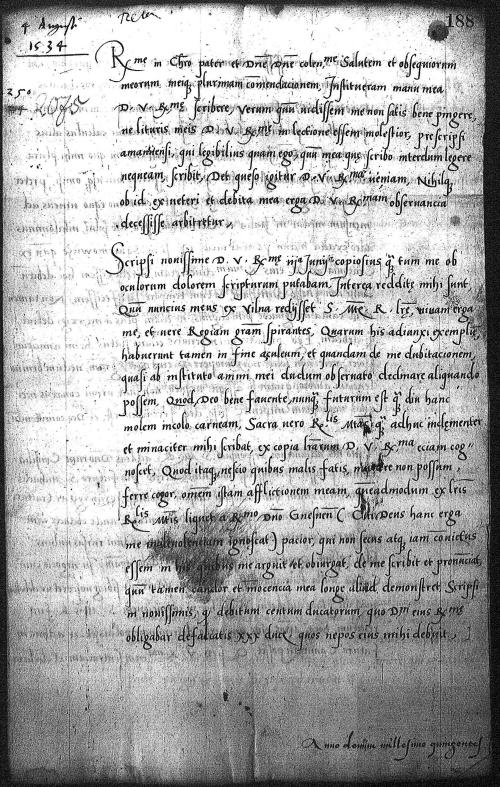 4 Augusti
1534
188
25º
2075
R^me in Chro pater et Dne, Dne colen^me Salutem et obsequiorum
meorum, meiq, plurimam comendacionem, Institueram manu mea
D. V. R^me scribere, verum qum uidissem me non satis bene pingere,
ne lituris meis D. V. R^me in lectione essem molestior, prescripsi
amanuensi, qui legibilius quam ego, qum mea que scribo interdum legere
nequeam, scribit, Det queso igitur D. V. R^ma ueniam, Nihilq,
ob id ex ueteri et debita mea erga D. V. R^mam obseruancia
decessisse arbitretur,
Scripsi nouissime D. V. R^me Junij copiosius q tum me ob
oculorum dolorem scripturum putabam, Interea reddite mihi sunt
Qum nuncius meus ex Vilna redijsset S. M. R. lre, uiuam erga
me, et uere Regiam gram spirantes, Quarum his adiunxi exempla,
habuerunt tamen in fine aculeum, et quandam de me dubitacionem,
quasi ab instituto animi mei dudum obseruato declinare aliquando
possem, Quod, Deo bene fauente, nunq, futurum est q diu hanc
molem incolo carneam, Sacra uero R^lis M^tas q adhuc inclementer
et minaciter mihi scribat, ex copia lrarum D. V. R^ma eciam cog=
noscet, Quod itaq, nescio quibus malis fatis, non possum,
ferre cogor, omem istam afflictionem meam, queadmodum ex lris
R^lis M^tis liquet a R^mo Dno Gnesnen ( Cui Deus hanc erga
me maleuolentiam ignoscat ) pacior, qui non secus atq, iam conictus
essem in his quibus me arguit et obiurgat, de me scribit et pronunciat,
qum tamen candor et inocencia mea longe aliud demonstret, Scripsi
in nouissimis, q debitum centum ducatorum, quo D^ni eius R^me
obligabar defalcatis xxx duc, quos nepos eius mihi debuit,
Anno domini millesimo quingentes